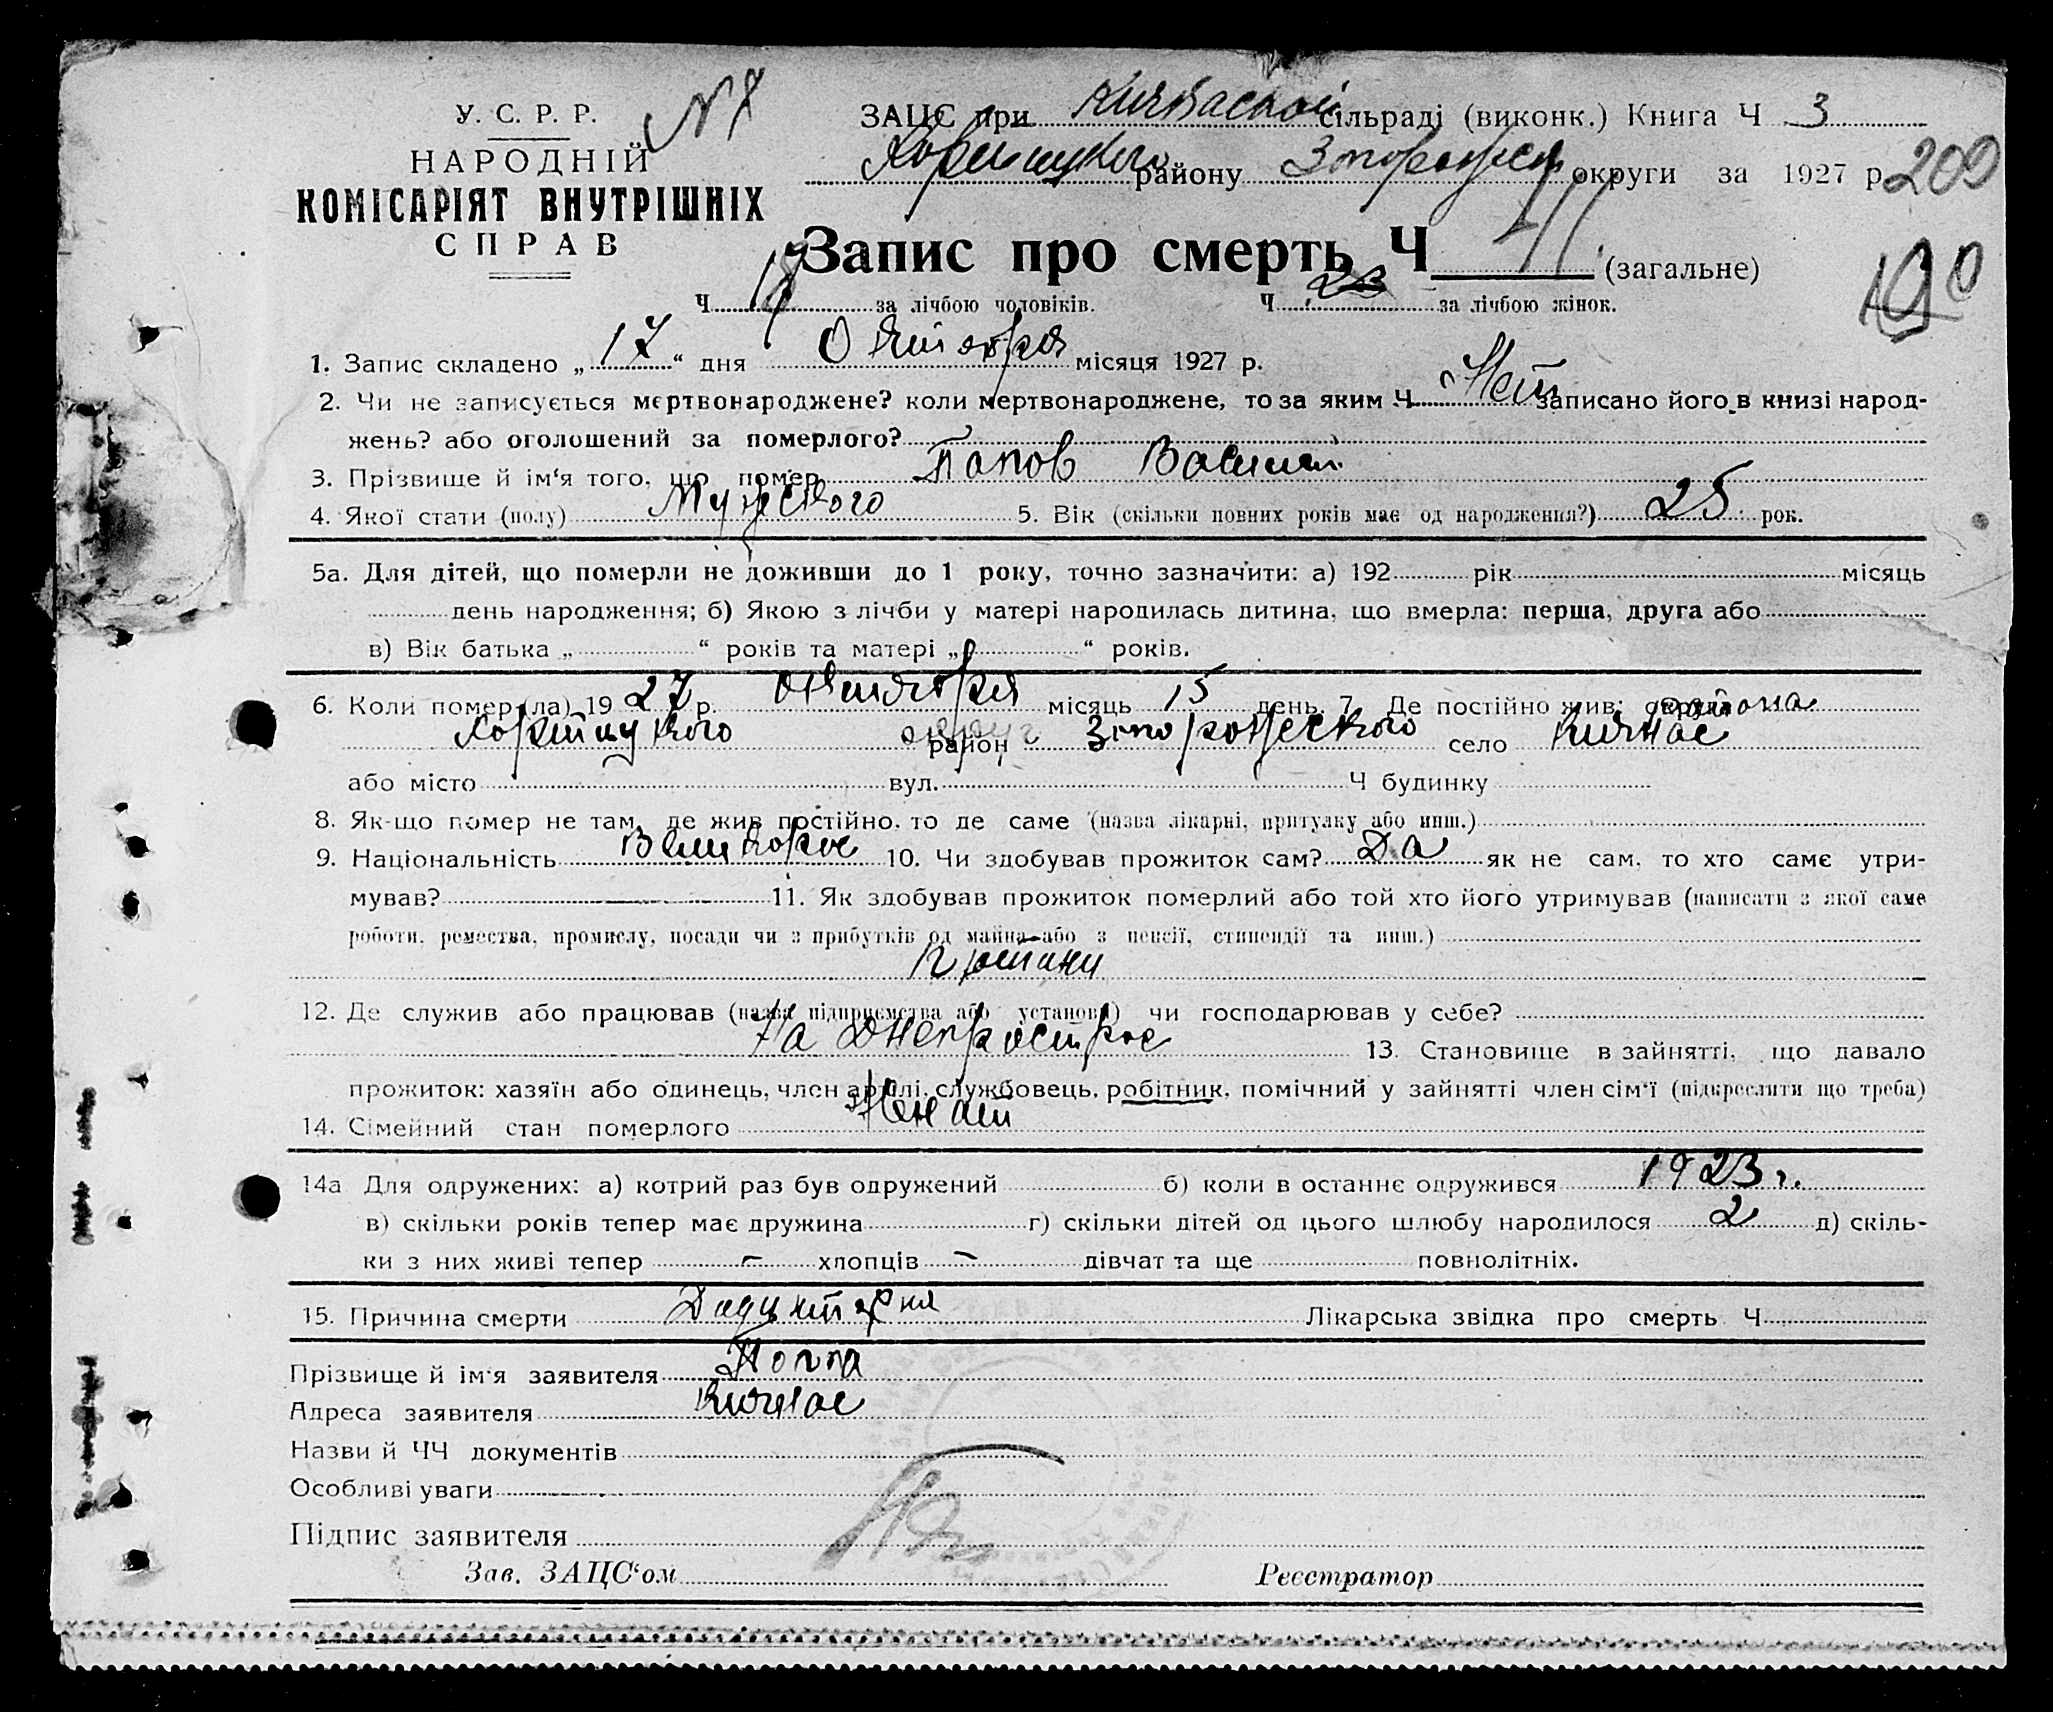 У. С. Р. Р.
НАРОДНІЙ
КОМІСАРІЯТ ВНУТРІШНІХ
СПРАВ
N 7
ЗАЦС при Кичкаской сільраді (виконк.) Книга Ч 3
Хортицкого району Запорожск округи за 1927 р. 209
Запис про смерть Ч 41 (загальне)
190
Ч 18 за лічбою чоловіків. Ч 23 за лічбою жінок.
1. Запис складено „ 17 “ дня Октября місяця 1927 р.
2. Чи не записується мертвонароджене? коли мертвонароджене, то за яким Ч Нет записано його в книзі народ-
жень? або оголошений за померлого?
3. Прізвище й ім‘я того, що помер Попов Василий
4. Якої стати (полу) Мужеского 5. Вік (скільки повних років має од народження?) 25 рок.
5а. Для дітей, що померли не доживши до 1 року, точно зазначити: а) 192 рік місяць
день народження; б) Якою з лічби у матері народилась дитина, що вмерла: перша, друга або
в) Вік батька „ “ років та матері „ “ років.
6. Коли помер (ла) 19 27 р. Октября місяць 15 день. 7. Де постійно жив: округа района
Хортицкого район округ Запорожского село Кичкас
або місто вул. Ч будинку
8. Як-що помер не там, де жив постійно, то де саме (назва лікарні, притулку або инш.)
9. Національність Великорос 10. Чи здобував прожиток сам? Да як не сам, то хто саме утри-
мував? 11. Як здобував прожиток померлий або той хто його утримував (написати з якої саме
роботи, ремества, промислу, посади чи з прибутків од майна або з пенсії, стипендії та инш.)
12. Де служив або працював (назва підприємства або установи) чи господарював у себе?
На Днепрострое 13. Становище в зайнятті, що давало
прожиток: хазяїн або одинець, член артілі, службовець, робітник, помічний у зайнятті член сім‘ї (підкреслити що треба)
14. Сімейний стан померлого Женат
14а Для одружених: а) котрий раз був одружений б) коли в останнє одружився 1923 г.
в) скільки років тепер має дружина г) скільки дітей од цього шлюбу народилося 2 д) скіль-
ки з них живі тепер – хлопців – дівчат та ще повнолітніх.
15. Причина смерти Лікарська звідка про смерть Ч
Прізвище й ім‘я заявителя
Адреса заявителя Кичкас
Назви й ЧЧ документів
Особливі уваги
Підпис заявителя
Зав. ЗАЦС‘ом Реєстратор